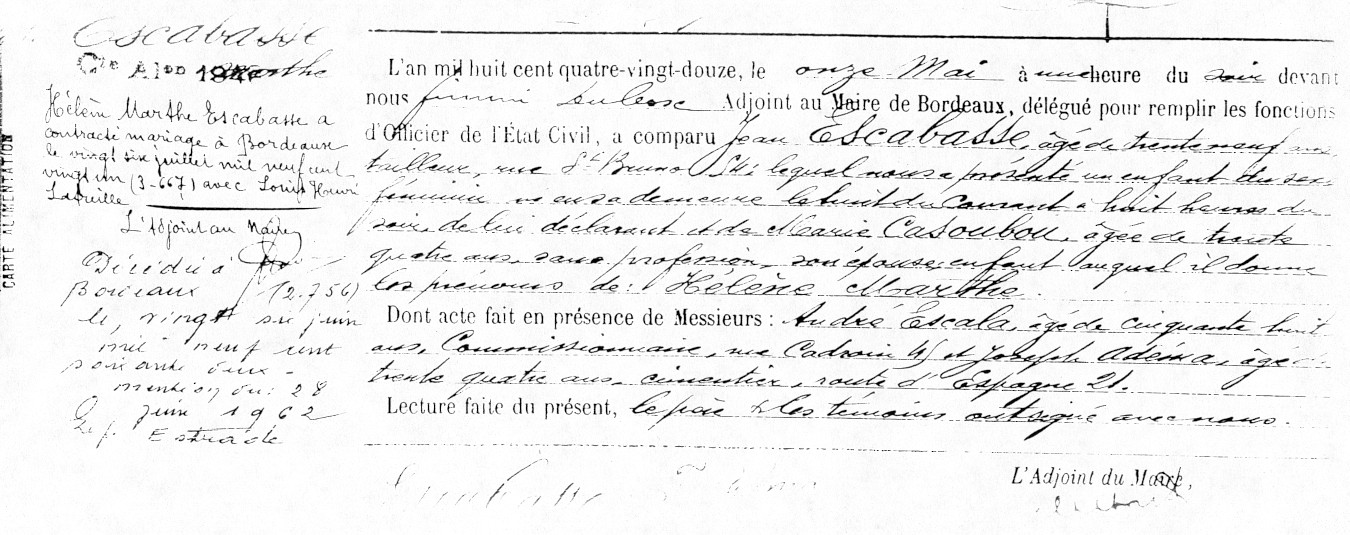 Escabasse
Marthe
Hélèn Marthe Escabasse a
contracté mariage à Bordeaux
le vingt six juillet mil neuf cent
vingt un (3-667) avec Louis Henri
L'Adjoint au Maire
Décédée à
Bordeaux (2.756)
le, vingt six juin
mil neuf cent
soixante deux -
mention du: 28
juin 1962
Estrade
CARTE ALIMENTATION
L'an mil huit cent quatre-vingt-douze, le onze Mai à une heure du soir devant
nous Adjoint au Maire de Bordeaux, délégué pour remplir les fonctions
d'Officier de l'État Civil, a comparu Jean Escabasse, âgé de trente neuf ans,
tailleur, rue St Bruno 54; lequel nous a présenté un enfant du sexe
féminin né en sa demeure le huit du courant à huit heures du
soir, de lui déclarant et de Marie Casoubou, âgée de trente
quatre ans, sans profession, son épouse; enfant auquel il donne
les prénoms de: Hélène Marthe.
Dont acte fait en présence de Messieurs : André Escala, âgé de cinquante huit
ans, Commissionnaire, rue Cadroin 45 et Joseph Adéma, âgé de
trente quatre ans, cimentier, route d'Espagne 21.
Lecture faite du présent, le père & les témoins ont signé avec nous.
L'Adjoint du Maire,